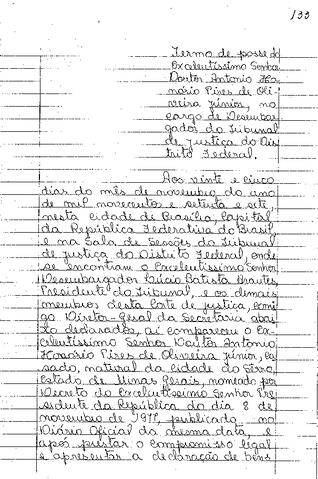 133
Termo de posse do
Excelentíssimo Senhor
Doutor Antonio Ho-
nório Pires de Oli-
veira Júnior, no
cargo de Desembar-
gador do Tribunal
de Justiça do Dis-
trito Federal.
Aos vinte e cinco
dias do mês de novembro do ano
de mil novecentos e setenta e sete,
nesta cidade de Brasília, Capital
da República Federativa do Brasil,
e na Sala de Sessões do Tribunal
de Justiça do Distrito Federal, onde
se encontram o Excelentíssimo Senhor
Desembargador Lúcio Batista Arantes,
Presidente do Tribunal, e os demais
membros desta Corte de Justiça, comi-
go Diretor-Geral da Secretaria abai-
xo declarado, aí compareceu o Ex-
celentíssimo Senhor Doutor Antonio
Honório Pires de Oliveira Júnior, ca-
sado, natural da cidade do Serro,
Estado de Minas Gerais, nomeado por
Decreto do Excelentíssimo Senhor Pre-
sidente da República do dia 8 de
novembro de 1977, publicado no
Diário Oficial da mesma data, e
após prestar o compromisso legal
e apresentar a declaração de bens